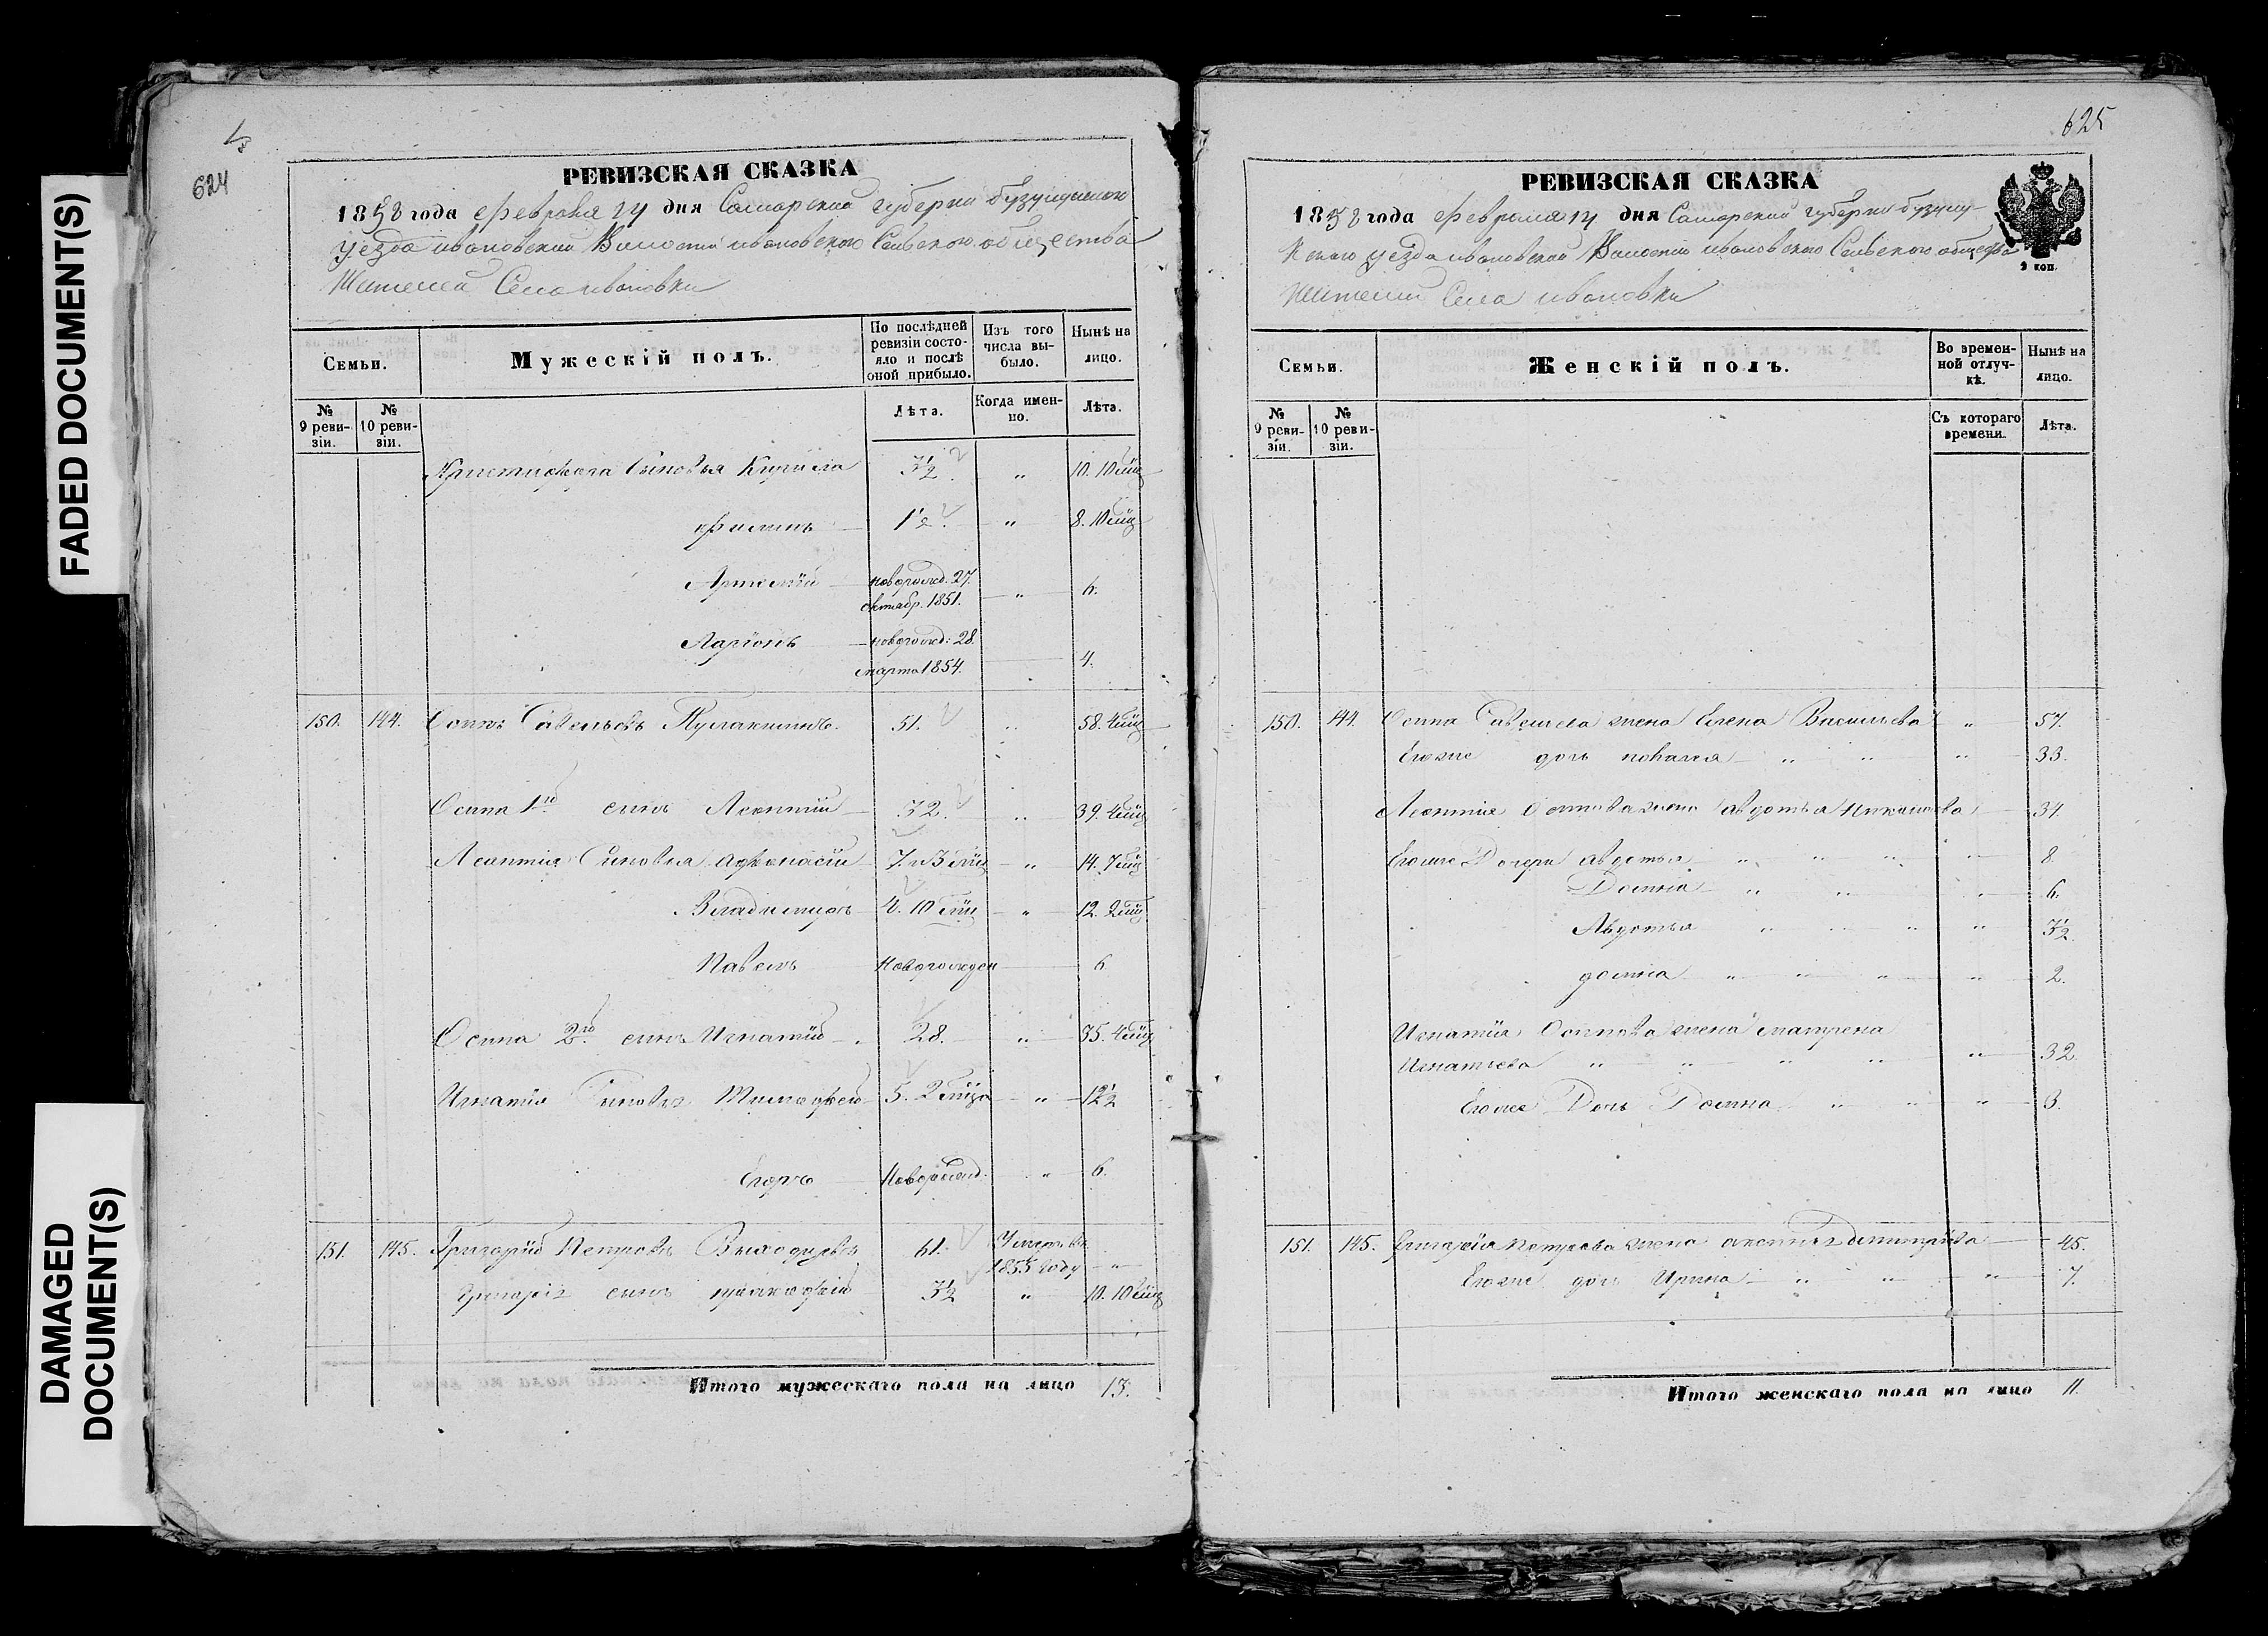 FADED DOCUMENT(S)
DAMAGED
DOCUMENT(S)
624
РЕВИЗСКАЯ СКАЗКА
1858 года Февраля 14 дня Самарской губерни бузулукского
уезда ивановской Волости ивановского Сельского общества
Жителей Села ивановки
Семьи.
Мужескій полъ.
По послѣдней ревизіи состояло и послѣ оной прибыло.
Изъ того числа выбыло.
Нынѣ на лицо.
№ 9 ревизіи.
№ 10 ревизіи.
Лѣта.
Когда именно.
Лѣта.
Сыновья Кирила 3½ " 10. 10 мц
Филипъ 1½ " 8. 10 мц
Артемій новорожд. 27. октябр. 1851. " 6.
Ларіонъ новорожд: 28. марта 1854. 4.
150. 144. Осипъ Савельевъ 51. " 58. 4 мц
Осипа 1го сынъ Леонтій 32. " 39. 4 мц
Леонтія Сыновья Афонасій 7. и 3 мц " 14. 7 мц
Владимиръ 4. 10 мц " 12. 2 мц
Павелъ Новорожден 6
Осипа 2го сынъ Игнатій 28. " 35. 4 мц
Игнатія Сыновья Тимофей 5. 2 мца " 12½
Егоръ Новорожд. " 6.
151. 145. Григорій Петровъ 61. Умеръ въ 1855 году "
Григорія сынъ 3½ " 10. 10 мц
Итого мужескаго пола на лицо 13.
625
РЕВИЗСКАЯ СКАЗКА
1858 года Февраля 14 дня Самарской губерни бузулу-
кского уезда ивановской Волости ивановского Сельского общества
Жителей Села ивановки
2 коп.
Семьи.
Женскій полъ.
Во временной отлучкѣ.
Нынѣ на лицо.
№ 9 ревизіи.
№ 10 ревизіи.
Съ котораго времени.
Лѣта.
150. 144. Осипа Савельева жена Елена Васильева " 57.
Егоже дочь " " " 33.
Леонтія Осипова жена авдотья Николаева 34.
Егоже Дочери авдотья " " " " 8.
Домна " " " 6.
Авдотья " " " " 3½
домна " " " " 2.
Игнатія Осипова жена матрена
Игнатьева " " " " " 32.
Егоже Дочь Домна " " " 3.
151. 145. Григорія Петрова жена Дмитріева 45.
Егоже дочь Ирина " " " 7.
Итого женскаго пола на лицо 11.